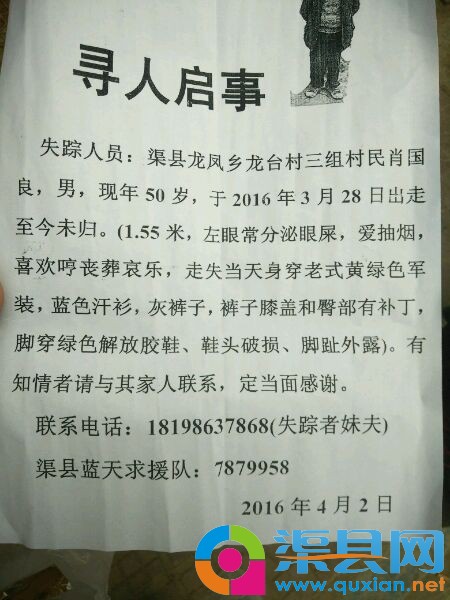 寻人启事
失踪人员：渠县龙凤乡龙台村三组村民肖国
良，男，现年 50 岁，于 2016 年 3 月 28 日出走
至今未归。(1.55 米，左眼常分泌眼屎，爱抽烟，
喜欢哼丧葬哀乐，走失当天身穿老式黄绿色军
装，蓝色汗衫，灰裤子，裤子膝盖和臀部有补丁，
脚穿绿色解放胶鞋、鞋头破损、脚趾外露)。有
知情者请与其家人联系，定当面感谢。
联系电话：18198637868(失踪者妹夫)
渠县蓝天求援队：7879958
2016 年 4 月 2 日
渠县网
www.quxian.net